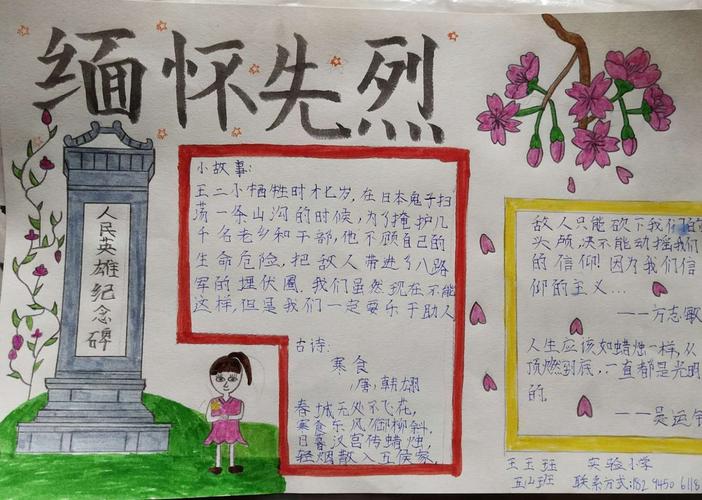 缅怀先烈
人民英雄纪念碑
小故事:
王二小牺牲时才七岁,在日本鬼子扫
荡一条山沟的时候,为了掩护几
千名老乡和干部,他不顾自己的
生命危险,把敌人带进了八路
军的埋伏圈。我们虽然现在不能
这样,但是我们一定要乐于助人
古诗:
寒食
(唐)韩翃
春城无处不飞花,
寒食东风御柳斜,
日暮汉宫传蜡烛,
轻烟散入五侯家。
敌人只能砍下我们的
头颅,决不能动摇我们
的信仰!因为我们信
仰的主义...
——方志敏
人生应该如蜡烛一样,从
顶燃到底,一直都是光明
的.
——吴运
实验小学
联系方式: